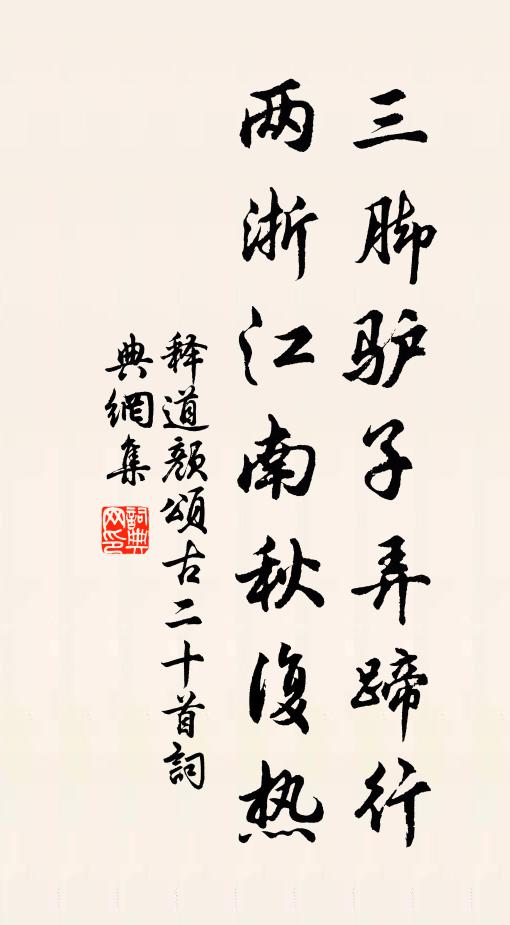 三脚驴子弄蹄行
两浙江南秋復热
释道颜頌古二十首詞
典網集
詞典網印